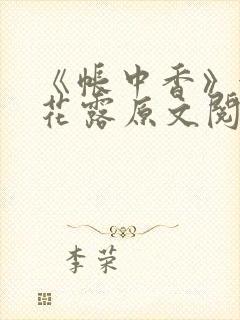 《帐中香》
花露原文阅
李荣